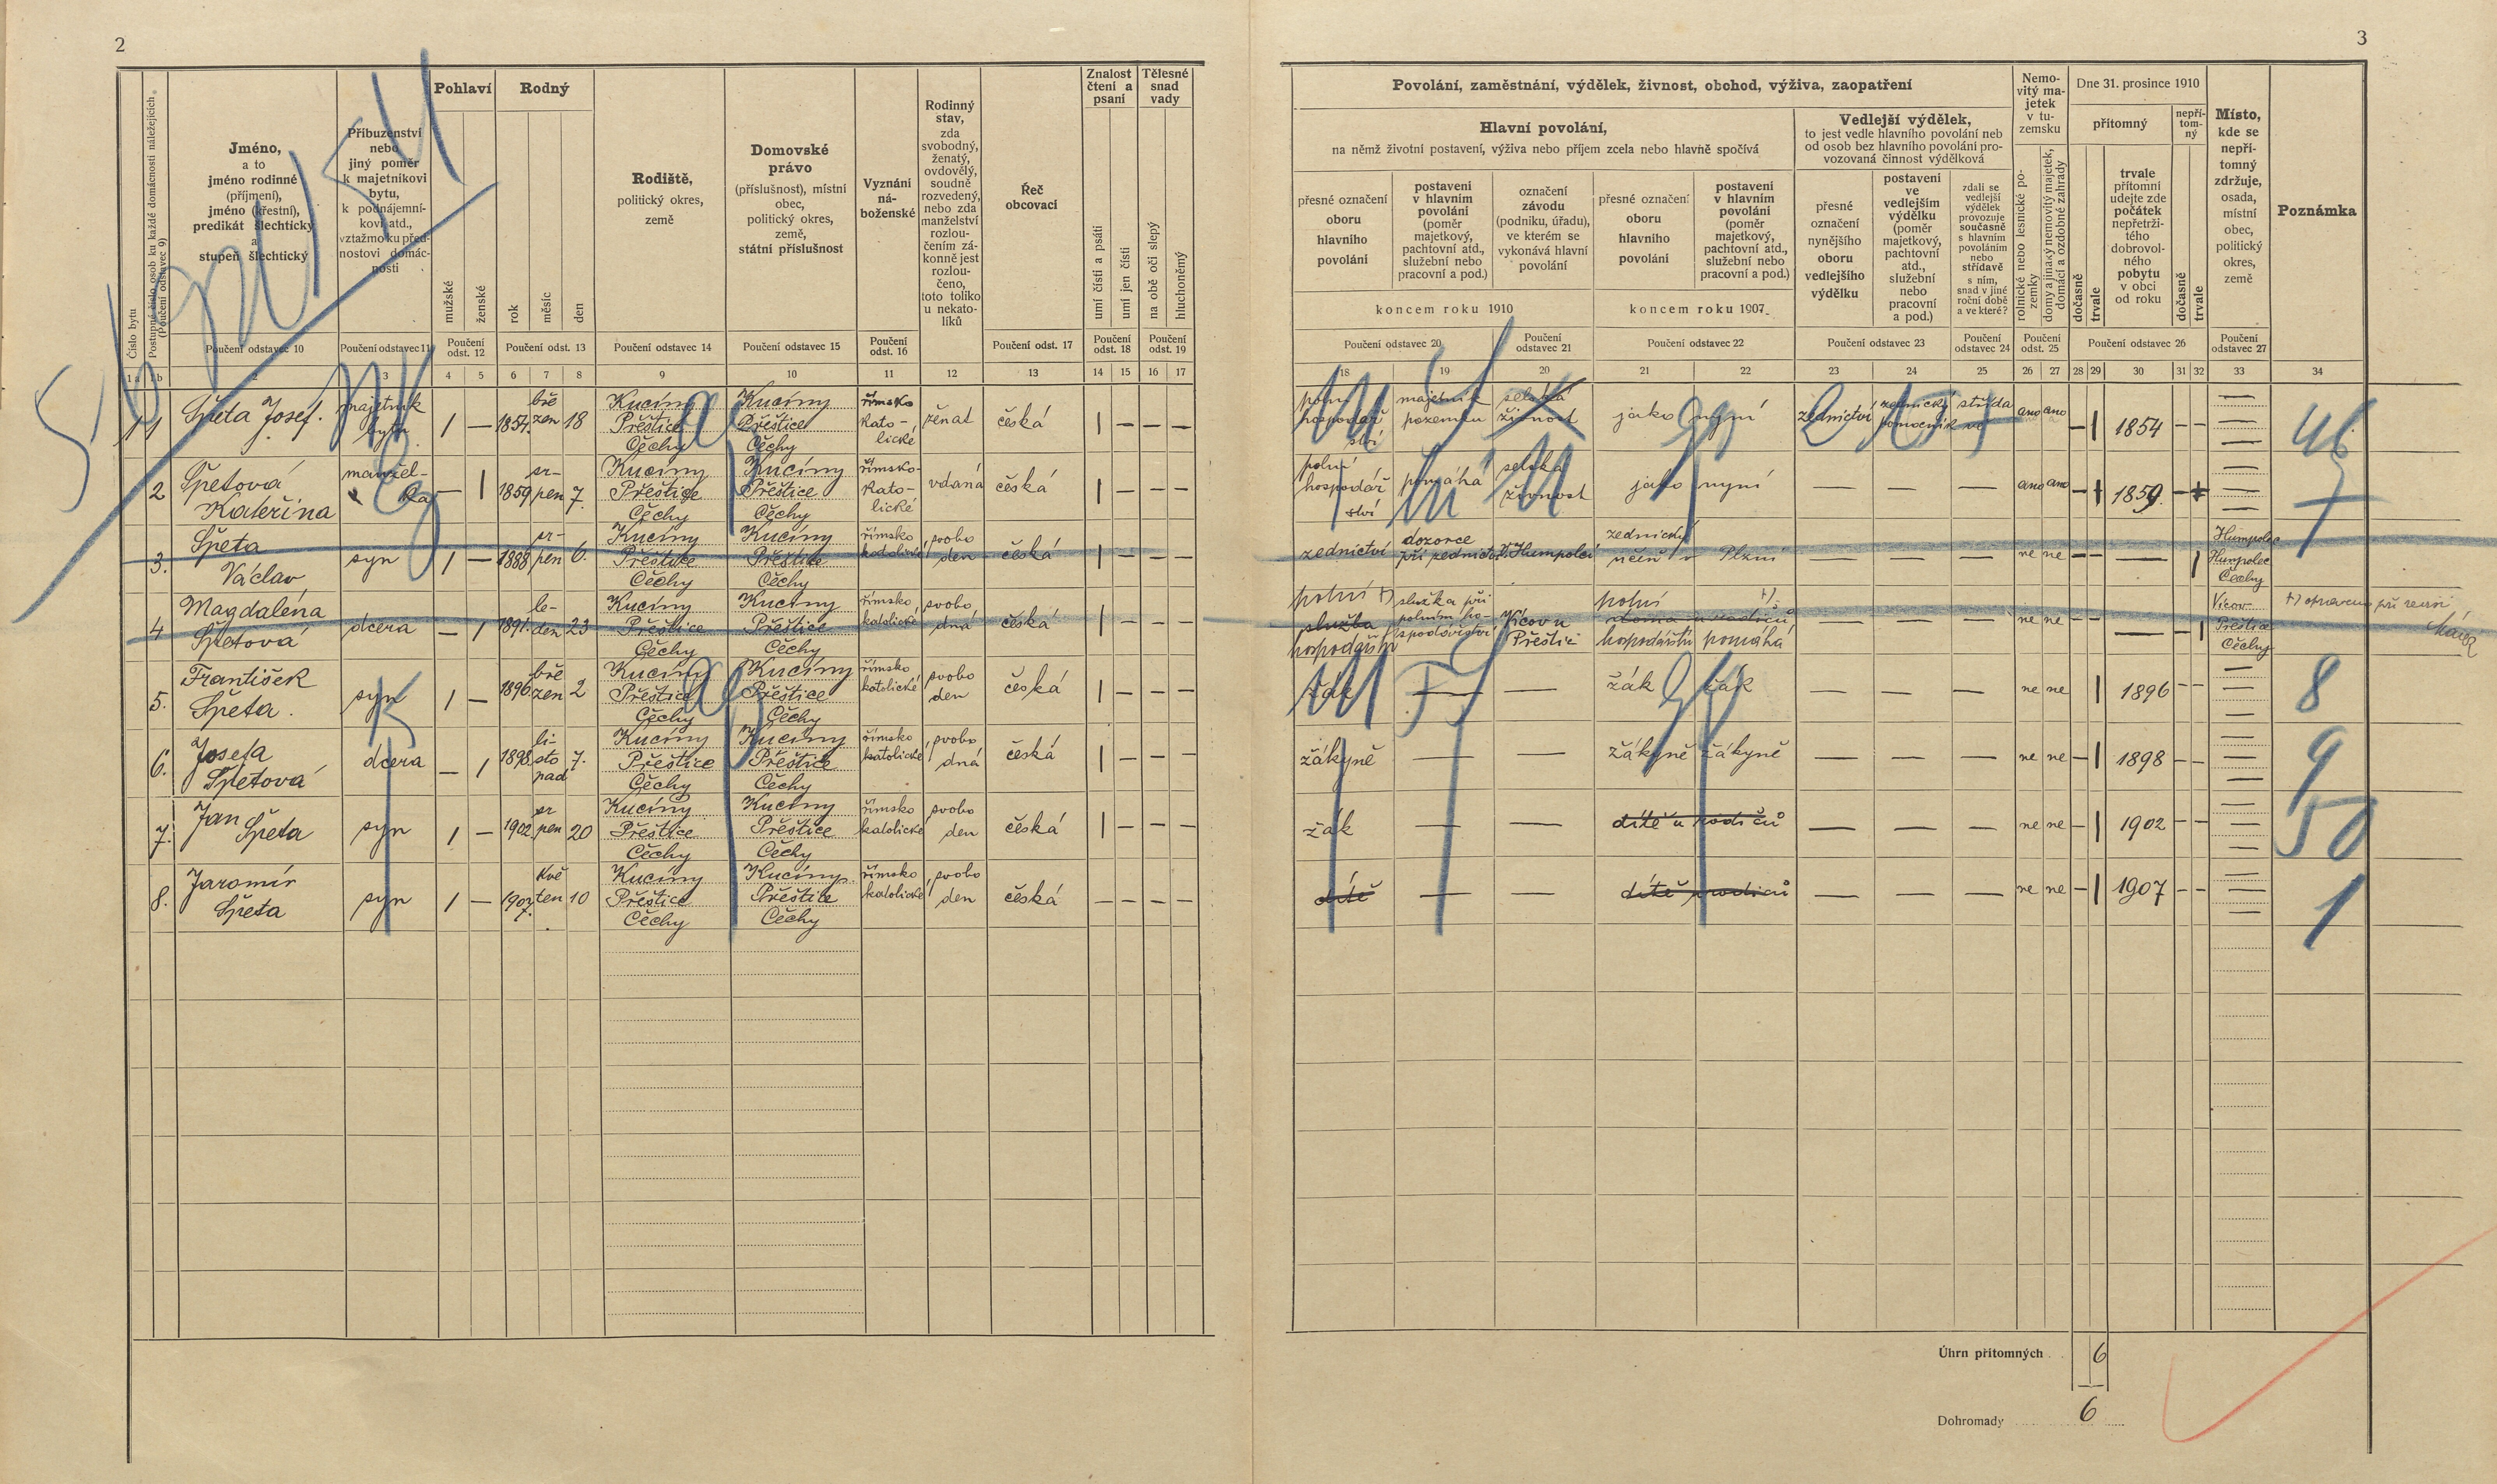 2
3
Číslo bytu
Postupné číslo osob ku každé domácnosti náležejících
(Poučení odstavec 9)
Jméno,
a to
jméno rodinné
(příjmení),
jméno (křestní),
predikát šlechtický
a
stupeň šlechtický
Příbuzenství
nebo
jiný poměr
k majetníkovi
bytu,
k podnájemní-
kovi atd.,
vztažmo ku před-
nostovi domác-
nosti
Pohlaví
mužské
ženské
Rodný
rok
měsíc
den
Rodiště,
politický okres,
země
Domovské
právo
(příslušnost), místní
obec,
politický okres,
země,
státní příslušnost
Vyznání
ná-
boženské
Rodinný
stav,
zda
svobodný,
ženatý,
ovdovělý,
soudně
rozvedený,
nebo zda
manželství
rozlou-
čením zá-
konně jest
rozlou-
čeno,
toto toliko
u nekato-
líků
Řeč
obcovací
Znalost
čtení a
psaní
umí čísti a psáti
umí jen čísti
Tělesné
snad
vady
na obě oči slepý
hluchoněmý
Poučení odstavec 10
Poučení odstavec 11
Poučení
odst. 12
Poučení odst. 13
Poučení odstavec 14
Poučení odstavec 15
Poučení
odst. 16
Poučení odst. 17
Poučení
odst. 18
Poučení
odst. 19
1a 1b 2 3 4 5 6 7 8 9 10 11 12 13 14 15 16 17
Povolání, zaměstnání, výdělek, živnost, obchod, výživa, zaopatření
Hlavní povolání,
na němž životní postavení, výživa nebo příjem zcela nebo hlavně spočívá
přesné označení
oboru
hlavního
povolání
postavení
v hlavním
povolání
(poměr
majetkový,
pachtovní atd.,
služební nebo
pracovní a pod.)
označení
závodu
(podniku, úřadu),
ve kterém se
vykonává hlavní
povolání
koncem roku 1910
přesné označení
oboru
hlavního
povolání
postavení
v hlavním
povolání
(poměr
majetkový,
pachtovní atd.,
služební nebo
pracovní a pod.)
koncem roku 1907
Vedlejší výdělek,
to jest vedle hlavního povolání neb
od osob bez hlavního povolání pro-
vozovaná činnost výdělková
přesné
označení
nynějšího
oboru
vedlejšího
výdělku
postavení
ve
vedlejším
výdělku
(poměr
majetkový,
pachtovní
atd.,
služební
nebo
pracovní
a pod.)
zdali se
vedlejší
výdělek
provozuje
současně
s hlavním
povoláním
nebo
střídavě
s ním,
snad v jiné
roční době
a ve které?
Nemo-
vitý ma-
jetek
v tu-
zemsku
rolnické nebo lesnické po-
zemky
domy a jinaký nemovitý majetek,
domácí a ozdobné zahrady
Dne 31. prosince 1910
přítomný
dočasně
trvale
trvale
přítomní
udejte zde
počátek
nepřetrži-
tého
dobrovol-
ného
pobytu
v obci
od roku
nepří-
tom-
ný
dočasně
trvale
Místo,
kde se
nepří-
tomný
zdržuje,
osada,
místní
obec,
politický
okres,
země
Poznámka
Poučení odstavec 20
Poučení
odstavec 21
Poučení odstavec 22
Poučení odstavec 23
Poučení
odstavec 24
Poučení
odst. 25
Poučení odstavec 26
Poučení
odstavec 27
18 19 20 21 22 23 24 25 26 27 28 29 30 31 32 33 34
1 1 Špeta Josef. majetník bytu 1 — 1854 březen 18 Kucíny Přeštice Čechy Kucíny Přeštice Čechy římsko katolické ženat česká 1 — — —
polní hospodářství majetník pozemku selská živnost jako nyní zednictví zednický pomocník ano ano — 1 1854 — —
46
2 Špetová Kateřina manželka — 1 1859 srpen 7. Kucíny Přeštice Čechy Kucíny Přeštice Čechy římsko-katolické vdaná česká 1 — — —
polní hospodářství pomáhá selská živnost jako nyní — — — ano ano 1859
7
3. Špeta Václav syn 1 — 1888 srpen 6. Kucíny Přeštice Čechy Kucíny Přeštice Čechy římsko katolické svoboden česká 1 — — —
zednictví dozorce při zednictví Humpolci zednický učeň v Plzni — — — ne ne — — — 1 Humpolec Humpolec Čechy
4 Magdaléna Špetová dcera — 1 1891. leden 23 Kucíny Přeštice Čechy Kucíny Přeštice Čechy římsko katolické svobodná česká 1 — — —
polní +) služba hospodářství služka při polním hospodářství Vícov u Přeštic polní +) doma u rodičů hospodářství pomáhá — — — ne ne — — — 1 Vícov Přeštice Čechy
+) opraveno při revisi
5. František Špeta. syn 1 — 1896 březen 2 Kucíny Přeštice Čechy Kucíny Přeštice Čechy římsko katolické svoboden česká 1 — — —
žák — — žák žák — — — ne ne 1 1896 — —
8
6. Josefa Špetová dcera — 1 1898 listopad 7. Kucíny Přeštice Čechy Kucíny Přeštice Čechy římsko katolické svobodná česká 1 — — —
žákyně — — žákyně žákyně — — — ne ne — 1 1898 — —
9
7. Jan Špeta syn 1 — 1902 srpen 20 Kucíny Přeštice Čechy Kucíny Přeštice Čechy římsko katolické svoboden česká 1 — — —
žák — — dítě u rodičů — — — ne ne — 1 1902 — —
50
8. Jaromír Špeta syn 1 — 1907 květen 10 Kucíny Přeštice Čechy Kucíny Přeštice Čechy římsko katolické svoboden česká — — — —
dítě — — dítě u rodičů — — — ne ne — 1 1907 — —
1
Úhrn přítomných 6
Dohromady 6